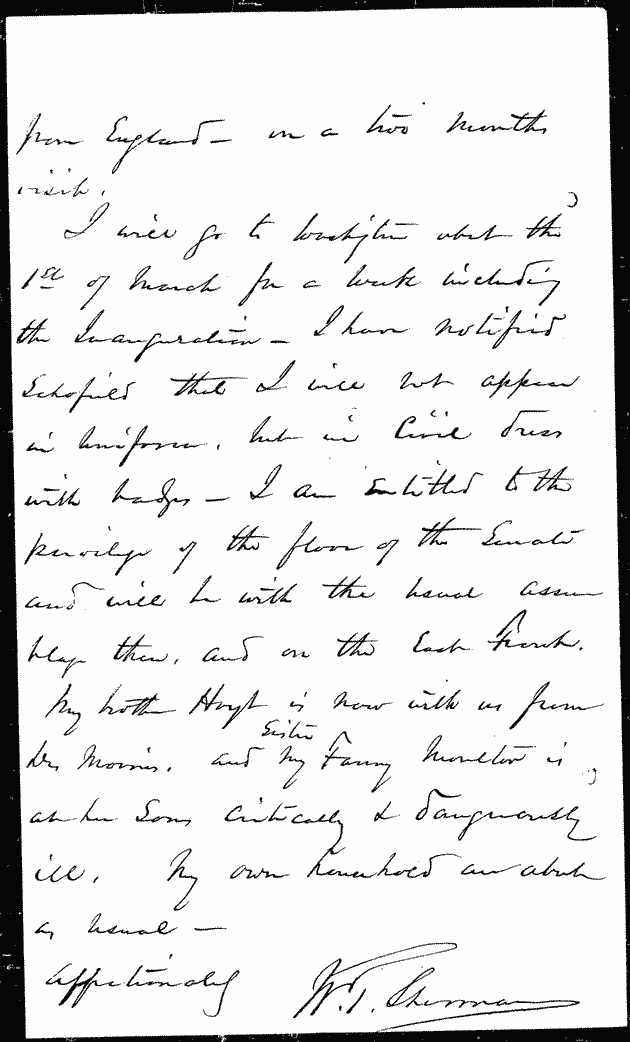 from England – on a two months
visit.
I will go to Washington about the
1st of March for a week including
the Inauguration – I have notified
Schofield that I will not appear
in Uniform, but in Civil dress
with badges – I am entitled to the
privilege of the floor of the Senate
and will be with the usual assem
blage there, and on the East Front.
My brother Hoyt is now with us from
Des Moines, and my Sister Fanny Moulton is
at her Sons critically & dangerously
ill. My own household are about
as usual –
Affectionately W. T. Sherman